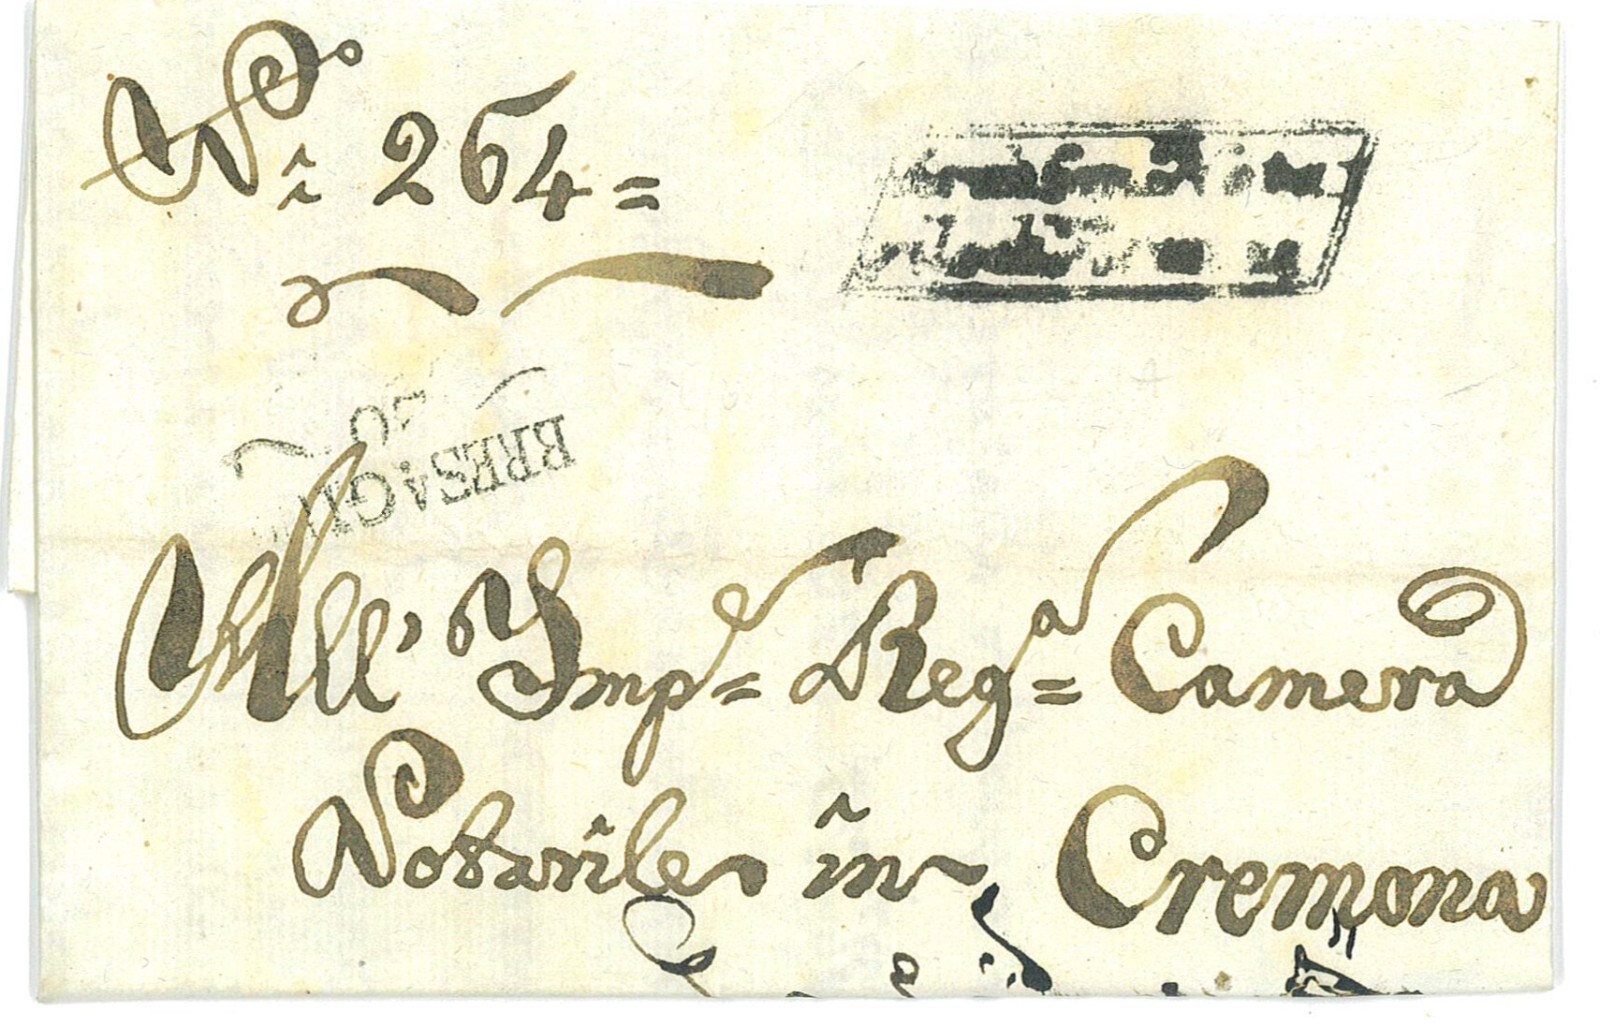 Nⁱ 264=
20
BRESAGH
All' Imp^e= Reg^a= Camera
Notarile in Cremona